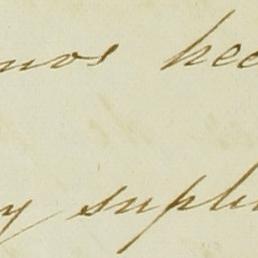 mos hec
y supli